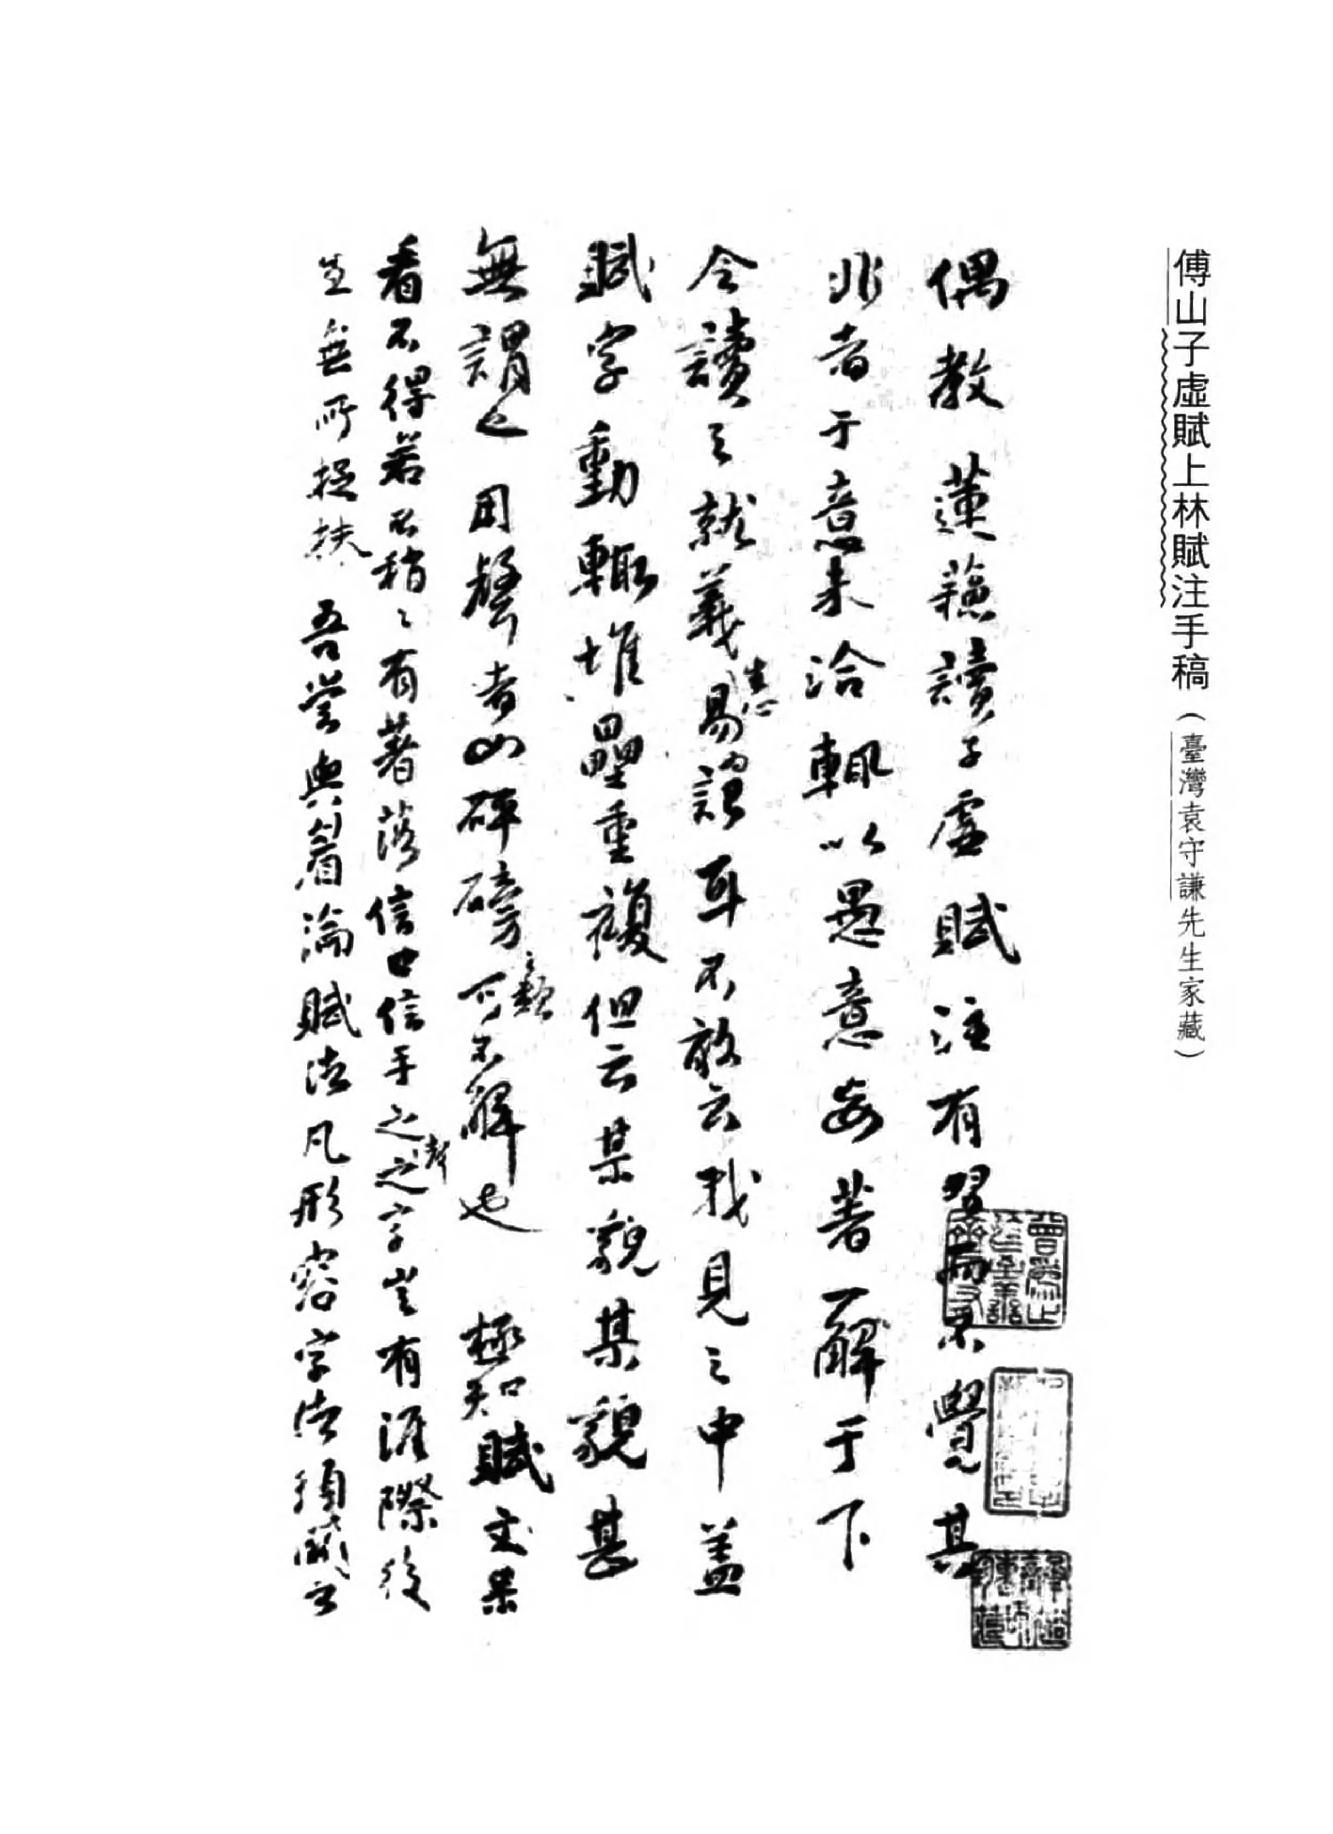 傅山子虛賦上林賦注手稿（臺灣袁守謙先生家藏）
偶教蓮蘇讀子虛賦注有習而不覺其
非者于意未洽輒以愚意妄著一解于下
令讀之就義易 耳不敢云我見之中蓋
賦字動輒堆壘重複但云某貌某貌甚
無謂也 因聲者如砰磅之類 可不解也 極知賦文呆
看不得若不稍稍有著落信口信手之聲之字豈有涯際後
生無所捉扶 吾嘗與眉論賦法凡形容字法須